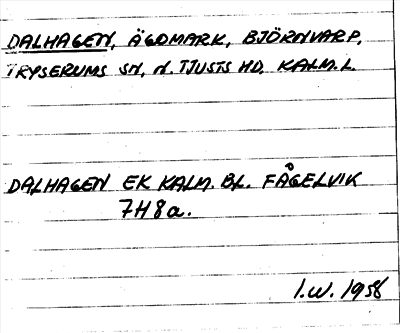 DALHAGEN, ÄGOMARK, BJÖRNVARP,
TRYSERUMS SN, N. TJUSTS HD, KALM. L.
DALHAGEN EK KALM. BL. FÅGELVIK
7H8a.
I.W. 1958